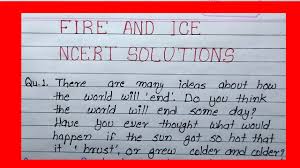 FIRE AND ICE
NCERT SOLUTIONS
Qu.1. There are many ideas about how
the world will 'end'. Do you think
the world will end some day?
Have you ever thought what would
happen if the sun got so hot that
it 'brust', or grew colder and colder?